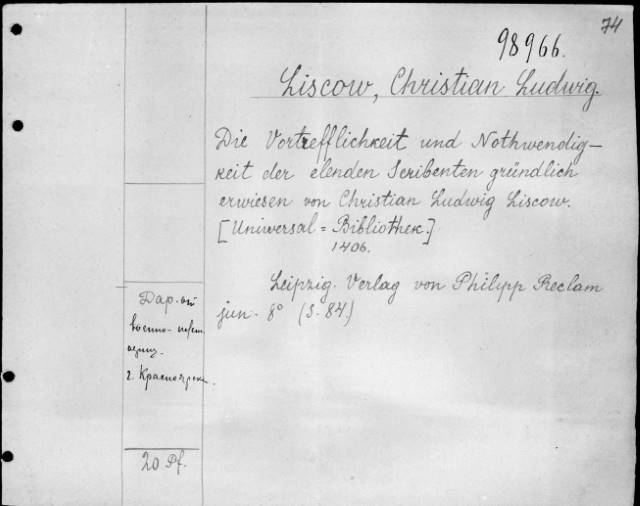 74
98966.
Liscow, Christian Ludwig.
Die Vortrefflichkeit und Nothwendig-
keit der elenden Scribenten gründlich
erwiesen von Christian Ludwig Liscow.
[Universal = Bibliothek.]
1406.
Leipzig. Verlag von Philipp Reclam
jun. 8° (S. 84.)
Дар. от
военно-
г. Красноярск
20 Pf.